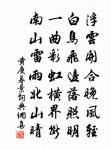 浮雲開合晚風輕
白鳥飛邊落照明
一曲彩虹橫界斷
南山雷雨北山晴
黃庚暮景詞典網書